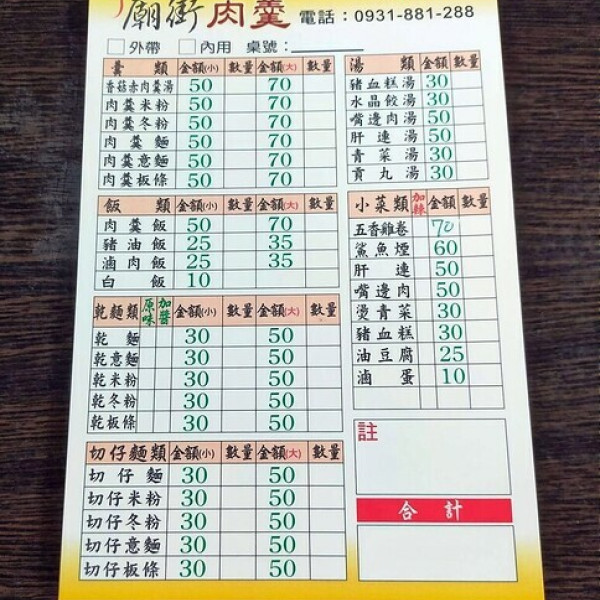 廟街肉羹 電話：0931-881-288
外帶 內用 桌號：
羹類 金額(小) 數量 金額(大) 數量
香菇赤肉羹湯 50 70
肉羹米粉 50 70
肉羹冬粉 50 70
肉羹麵 50 70
肉羹意麵 50 70
肉羹板條 50 70
飯類 金額(小) 數量 金額(大) 數量
肉羹飯 50 70
豬油飯 25 35
滷肉飯 25 35
白飯 10
乾麵類 原味 加醬 金額(小) 數量 金額(大) 數量
乾麵 30 50
乾意麵 30 50
乾米粉 30 50
乾冬粉 30 50
乾板條 30 50
切仔麵類 金額(小) 數量 金額(大) 數量
切仔麵 30 50
切仔米粉 30 50
切仔冬粉 30 50
切仔意麵 30 50
切仔板條 30 50
湯類 金額 數量
豬血糕湯 30
水晶餃湯 30
嘴邊肉湯 50
肝連湯 50
青菜湯 30
貢丸湯 30
小菜類 加辣 金額 數量
五香雞卷 70
鯊魚煙 60
肝連 50
嘴邊肉 50
燙青菜 30
豬血糕 30
油豆腐 25
滷蛋 10
註
合計